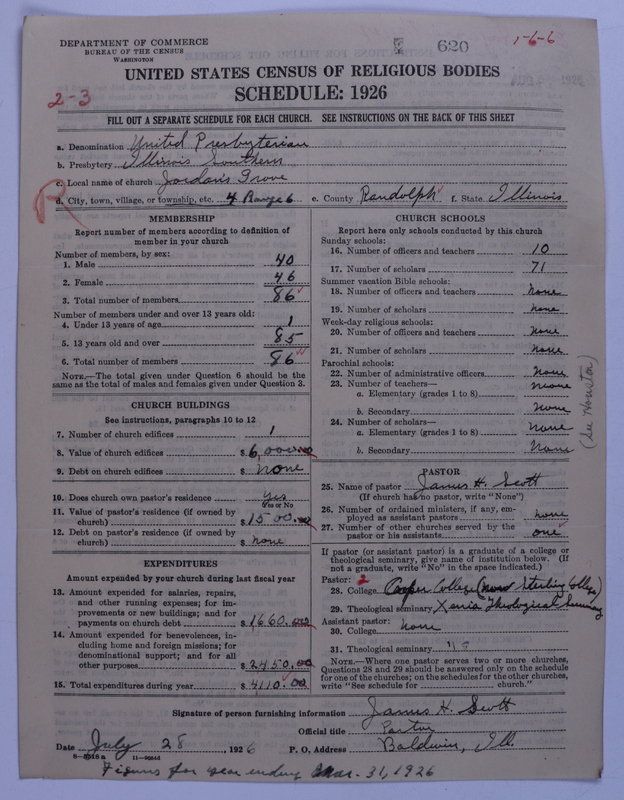 DEPARTMENT OF COMMERCE
BUREAU OF THE CENSUS
WASHINGTON
620
1-6-6
UNITED STATES CENSUS OF RELIGIOUS BODIES
SCHEDULE: 1926
2-3
FILL OUT A SEPARATE SCHEDULE FOR EACH CHURCH. SEE INSTRUCTIONS ON THE BACK OF THIS SHEET
a. Denomination United Presbyterian
b. Presbytery Illinois Southern
c. Local name of church Jordans Grove
d. City, town, village, or township, etc. 4 Range 6 e. County Randolph f. State Illinois
R
MEMBERSHIP
Report number of members according to definition of member in your church
Number of members, by sex:
1. Male 40
2. Female 46
3. Total number of members 86
Number of members under and over 13 years old:
4. Under 13 years of age 1
5. 13 years old and over 85
6. Total number of members 86
NOTE.—The total given under Question 6 should be the same as the total of males and females given under Question 3.
CHURCH BUILDINGS
See instructions, paragraphs 10 to 12
7. Number of church edifices 1
8. Value of church edifices $ 6,000.00
9. Debt on church edifices $ none
10. Does church own pastor's residence yes
Yes or No
11. Value of pastor's residence (if owned by church) $ 1500.00
12. Debt on pastor's residence (if owned by church) $ none
EXPENDITURES
Amount expended by your church during last fiscal year
13. Amount expended for salaries, repairs, and other running expenses; for improvements or new buildings; and for payments on church debt $ 1660.00
14. Amount expended for benevolences, including home and foreign missions; for denominational support; and for all other purposes $ 2450.00
15. Total expenditures during year $ 4110.00
CHURCH SCHOOLS
Report here only schools conducted by this church
Sunday schools:
16. Number of officers and teachers 10
17. Number of scholars 71
Summer vacation Bible schools:
18. Number of officers and teachers none
19. Number of scholars none
Week-day religious schools:
20. Number of officers and teachers none
21. Number of scholars none
Parochial schools:
22. Number of administrative officers None
23. Number of teachers—
a. Elementary (grades 1 to 8) none
b. Secondary none
24. Number of scholars—
a. Elementary (grades 1 to 8) none
b. Secondary None
(See Houston)
PASTOR
25. Name of pastor James H. Scott
(If church has no pastor, write "None")
26. Number of ordained ministers, if any, employed as assistant pastors none
27. Number of other churches served by the pastor or his assistants one
If pastor (or assistant pastor) is a graduate of a college or theological seminary, give name of institution below. (If not a graduate, write "No" in the space indicated.)
Pastor: 2
28. College Cooper College (now Sterling College)
29. Theological seminary Xenia Theological Seminary
Assistant pastor:
30. College none
31. Theological seminary
NOTE.—Where one pastor serves two or more churches, Questions 28 and 29 should be answered only on the schedule for one of the churches; on the schedules for the other churches, write "See schedule for church."
Signature of person furnishing information James H. Scott
Official title Pastor
Date July 28, 1926 P. O. Address Baldwin, Ill.
Figures for year ending Mar. 31, 1926